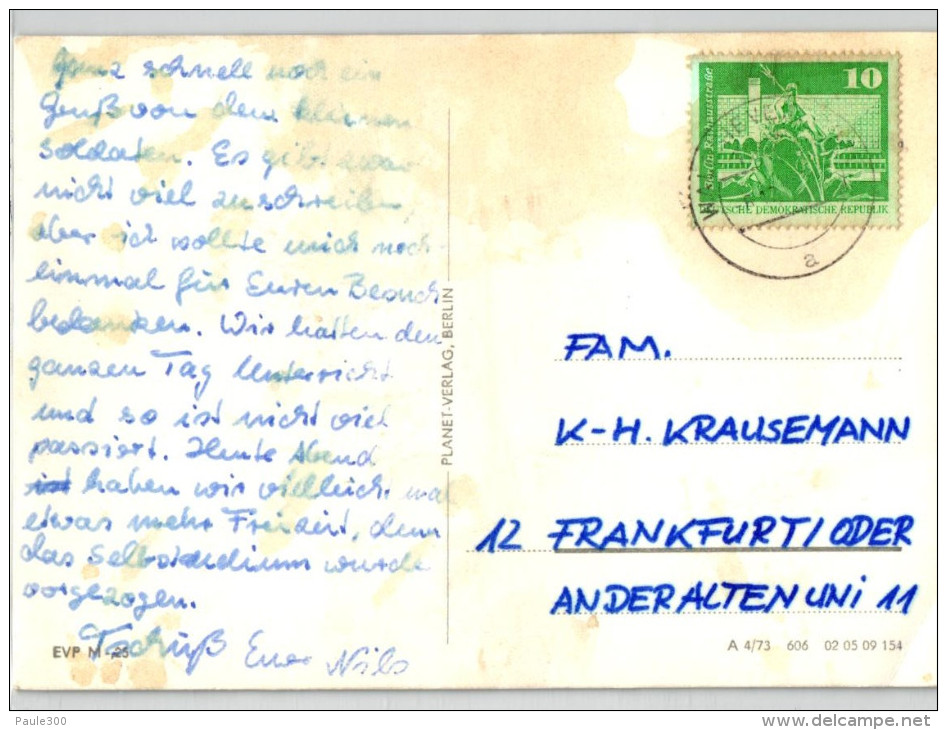 Ganz schnell noch ein
Gruß von dem kleinen
Soldaten. Es gibt zwar
nicht viel zuschreiben,
aber ich wollte mich noch-
einmal für Euren Besuch
bedanken. Wir hatten den
ganzen Tag Unterricht
und so ist nicht viel
passiert. Heute Abend
haben wir vielleicht mal
etwas mehr Freizeit, denn
das Selbststudium wurde
vorgezogen.
Tschüß Euer Nils
EVP M -,25
PLANET-VERLAG, BERLIN
10
Berlin Rathausstraße
DEMOKRATISCHE REPUBLIK
a
FAM.
K-H. KRAUSEMANN
12 FRANKFURT/ODER
AN DER ALTEN UNI 11
A 4/73 606 02 05 09 154
Paule300
www.delcampe.net